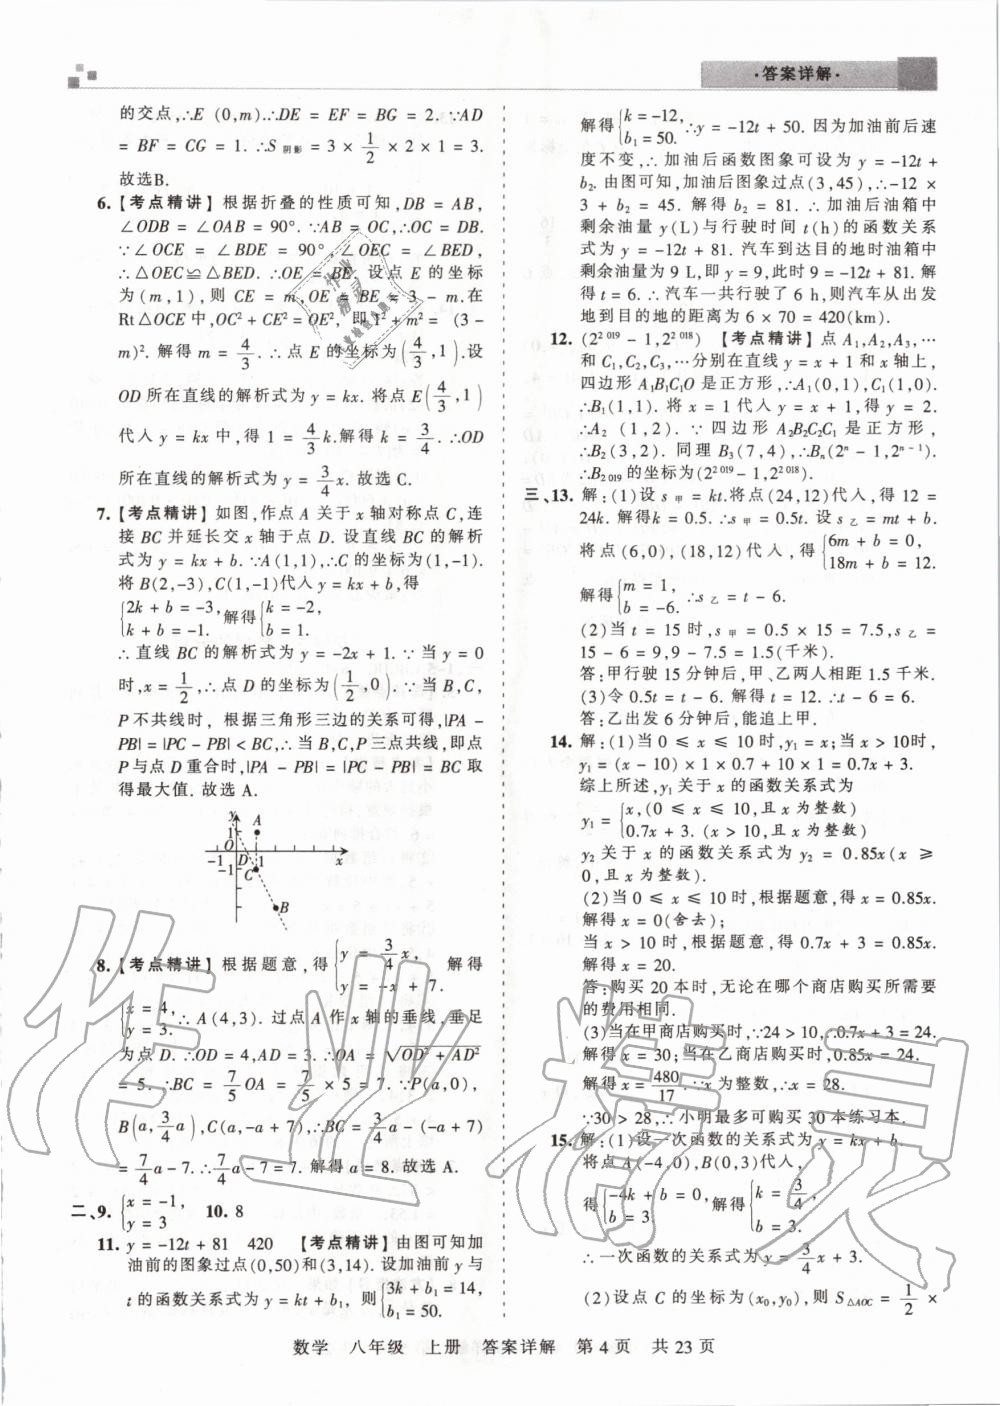 ·答案详解·
的交点,∴E (0,m).∴DE = EF = BG = 2. ∵AD
= BF = CG = 1. ∴S阴影 = 3 × 1/2 × 2 × 1 = 3.
故选B.
6. 【考点精讲】根据折叠的性质可知,DB = AB,
∠ODB = ∠OAB = 90°. ∵AB = OC,∴OC = DB.
∵∠OCE = ∠BDE = 90°,∠OEC = ∠BED,
∴△OEC≌△BED. ∴OE = BE. 设点 E 的坐标
为(m,1),则 CE = m,OE = BE = 3 - m.在
Rt△OCE 中,OC² + CE² = OE², 即 1² + m² = (3 -
m)². 解得 m = 4/3. ∴点 E 的坐标为(4/3,1).设
OD 所在直线的解析式为 y = kx. 将点 E(4/3,1)
代入 y = kx 中,得 1 = 4/3 k.解得 k = 3/4. ∴OD
所在直线的解析式为 y = 3/4 x. 故选 C.
7. 【考点精讲】如图,作点 A 关于 x 轴对称点 C,连
接 BC 并延长交 x 轴于点 D. 设直线 BC 的解析
式为 y = kx + b. ∵A(1,1),∴C 的坐标为(1,-1).
将 B(2,-3),C(1,-1)代入 y = kx + b,得
{2k + b = -3, k + b = -1. 解得 {k = -2, b = 1.
∴ 直线 BC 的解析式为 y = -2x + 1. ∵ 当 y = 0
时,x = 1/2,∴点 D 的坐标为(1/2,0). ∵当 B,C,
P 不共线时, 根据三角形三边的关系可得,|PA -
PB| = |PC - PB| < BC,∴ 当 B,C,P 三点共线,即点
P 与点 D 重合时,|PA - PB| = |PC - PB| = BC 取
得最大值. 故选 A.
y
1
A
O
-1
D
1
x
-1
C
B
8. 【考点精讲】根据题意,得 {y = 3/4 x, y = -x + 7. 解得
{x = 4, y = 3. ∴A(4,3). 过点 A 作 x 轴的垂线,垂足
为点 D. ∴OD = 4,AD = 3. ∴OA = √(OD² + AD²)
= 5. ∴BC = 7/5 OA = 7/5 × 5 = 7. ∵P(a,0),
B(a,3/4 a),C(a,-a + 7),∴BC = 3/4 a - (-a + 7)
= 7/4 a - 7. ∴7/4 a - 7 = 7. 解得 a = 8. 故选 A.
二、9. {x = -1, y = 3 10. 8
11. y = -12t + 81 420 【考点精讲】由图可知加
油前的图象过点(0,50)和(3,14). 设加油前 y 与
t 的函数关系式为 y = kt + b₁, 则 {3k + b₁ = 14, b₁ = 50.
解得 {k = -12, b₁ = 50. ∴y = -12t + 50. 因为加油前后速
度不变,∴加油后函数图象可设为 y = -12t +
b₂. 由图可知,加油后图象过点(3,45),∴-12 ×
3 + b₂ = 45. 解得 b₂ = 81. ∴ 加油后油箱中
剩余油量 y(L)与行驶时间 t(h)的函数关系
式为 y = -12t + 81. 汽车到达目的地时油箱中
剩余油量为 9 L,即 y = 9,此时 -12t + 81 = 9. 解
得 t = 6. ∴汽车一共行驶了 6 h,则汽车从出发
地到目的地的距离为 6 × 70 = 420(km).
12. (2²⁰¹⁹ - 1,2²⁰¹⁸) 【考点精讲】点 A₁,A₂,A₃,…
和 C₁,C₂,C₃,…分别在直线 y = x + 1 和 x 轴上,
四边形 A₁B₁C₁O 是正方形,∴A₁(0,1),C₁(1,0).
∴B₁(1,1). 将 x = 1 代入 y = x + 1,得 y = 2.
∴A₂ (1,2). ∵ 四边形 A₂B₂C₂C₁ 是正方形,
∴B₂(3,2). 同理 B₃(7,4),∴Bₙ(2ⁿ - 1,2ⁿ⁻¹).
∴B₂₀₁₉ 的坐标为(2²⁰¹⁹ - 1,2²⁰¹⁸).
三、13. 解:(1)设 s甲 = kt.将点(24,12)代入,得 12 =
24k. 解得k = 0.5. ∴s甲 = 0.5t. 设 s乙 = mt + b.
将点(6,0),(18,12)代入,得 {6m + b = 0, 18m + b = 12.
解得 {m = 1, b = -6. ∴s乙 = t - 6.
(2)当 t = 15 时,s甲 = 0.5 × 15 = 7.5,s乙 =
15 - 6 = 9,9 - 7.5 = 1.5(千米).
答:甲行驶 15 分钟后,甲、乙两人相距 1.5 千米.
(3)令 0.5t = t - 6. 解得 t = 12. ∴t - 6 = 6.
答:乙出发 6 分钟后,能追上甲.
14. 解:(1)当 0 ≤ x ≤ 10 时,y₁ = x;当 x > 10 时,
y₁ = (x - 10) × 1 × 0.7 + 10 × 1 = 0.7x + 3.
综上所述,y₁ 关于 x 的函数关系式为
y₁ = {x,(0 ≤ x ≤ 10,且 x 为整数) 0.7x + 3. (x > 10,且 x 为整数)
y₂ 关于 x 的函数关系式为 y₂ = 0.85x(x ≥
0,且 x 为整数).
(2)当 0 ≤ x ≤ 10 时,根据题意,得 x = 0.85x.
解得 x = 0(舍去);
当 x > 10 时,根据题意,得 0.7x + 3 = 0.85x.
解得 x = 20.
答:购买 20 本时,无论在哪个商店购买所需要
的费用相同.
(3)当在甲商店购买时,∵24 > 10,∴0.7x + 3 = 24.
解得 x = 30;当在乙商店购买时,0.85x = 24.
解得 x = 480/17. ∵x 为整数,∴x = 28.
∵30 > 28,∴小明最多可购买 30 本练习本.
15. 解:(1)设一次函数的关系式为 y = kx + b.
将点 A(-4,0),B(0,3)代入,
得 {-4k + b = 0, b = 3. 解得 {k = 3/4, b = 3.
∴一次函数的关系式为 y = 3/4 x + 3.
(2)设点 C 的坐标为(x₀,y₀),则 S△AOC = 1/2 ×
数学 八年级 上册 答案详解 第 4 页 共 23 页
作业精灵